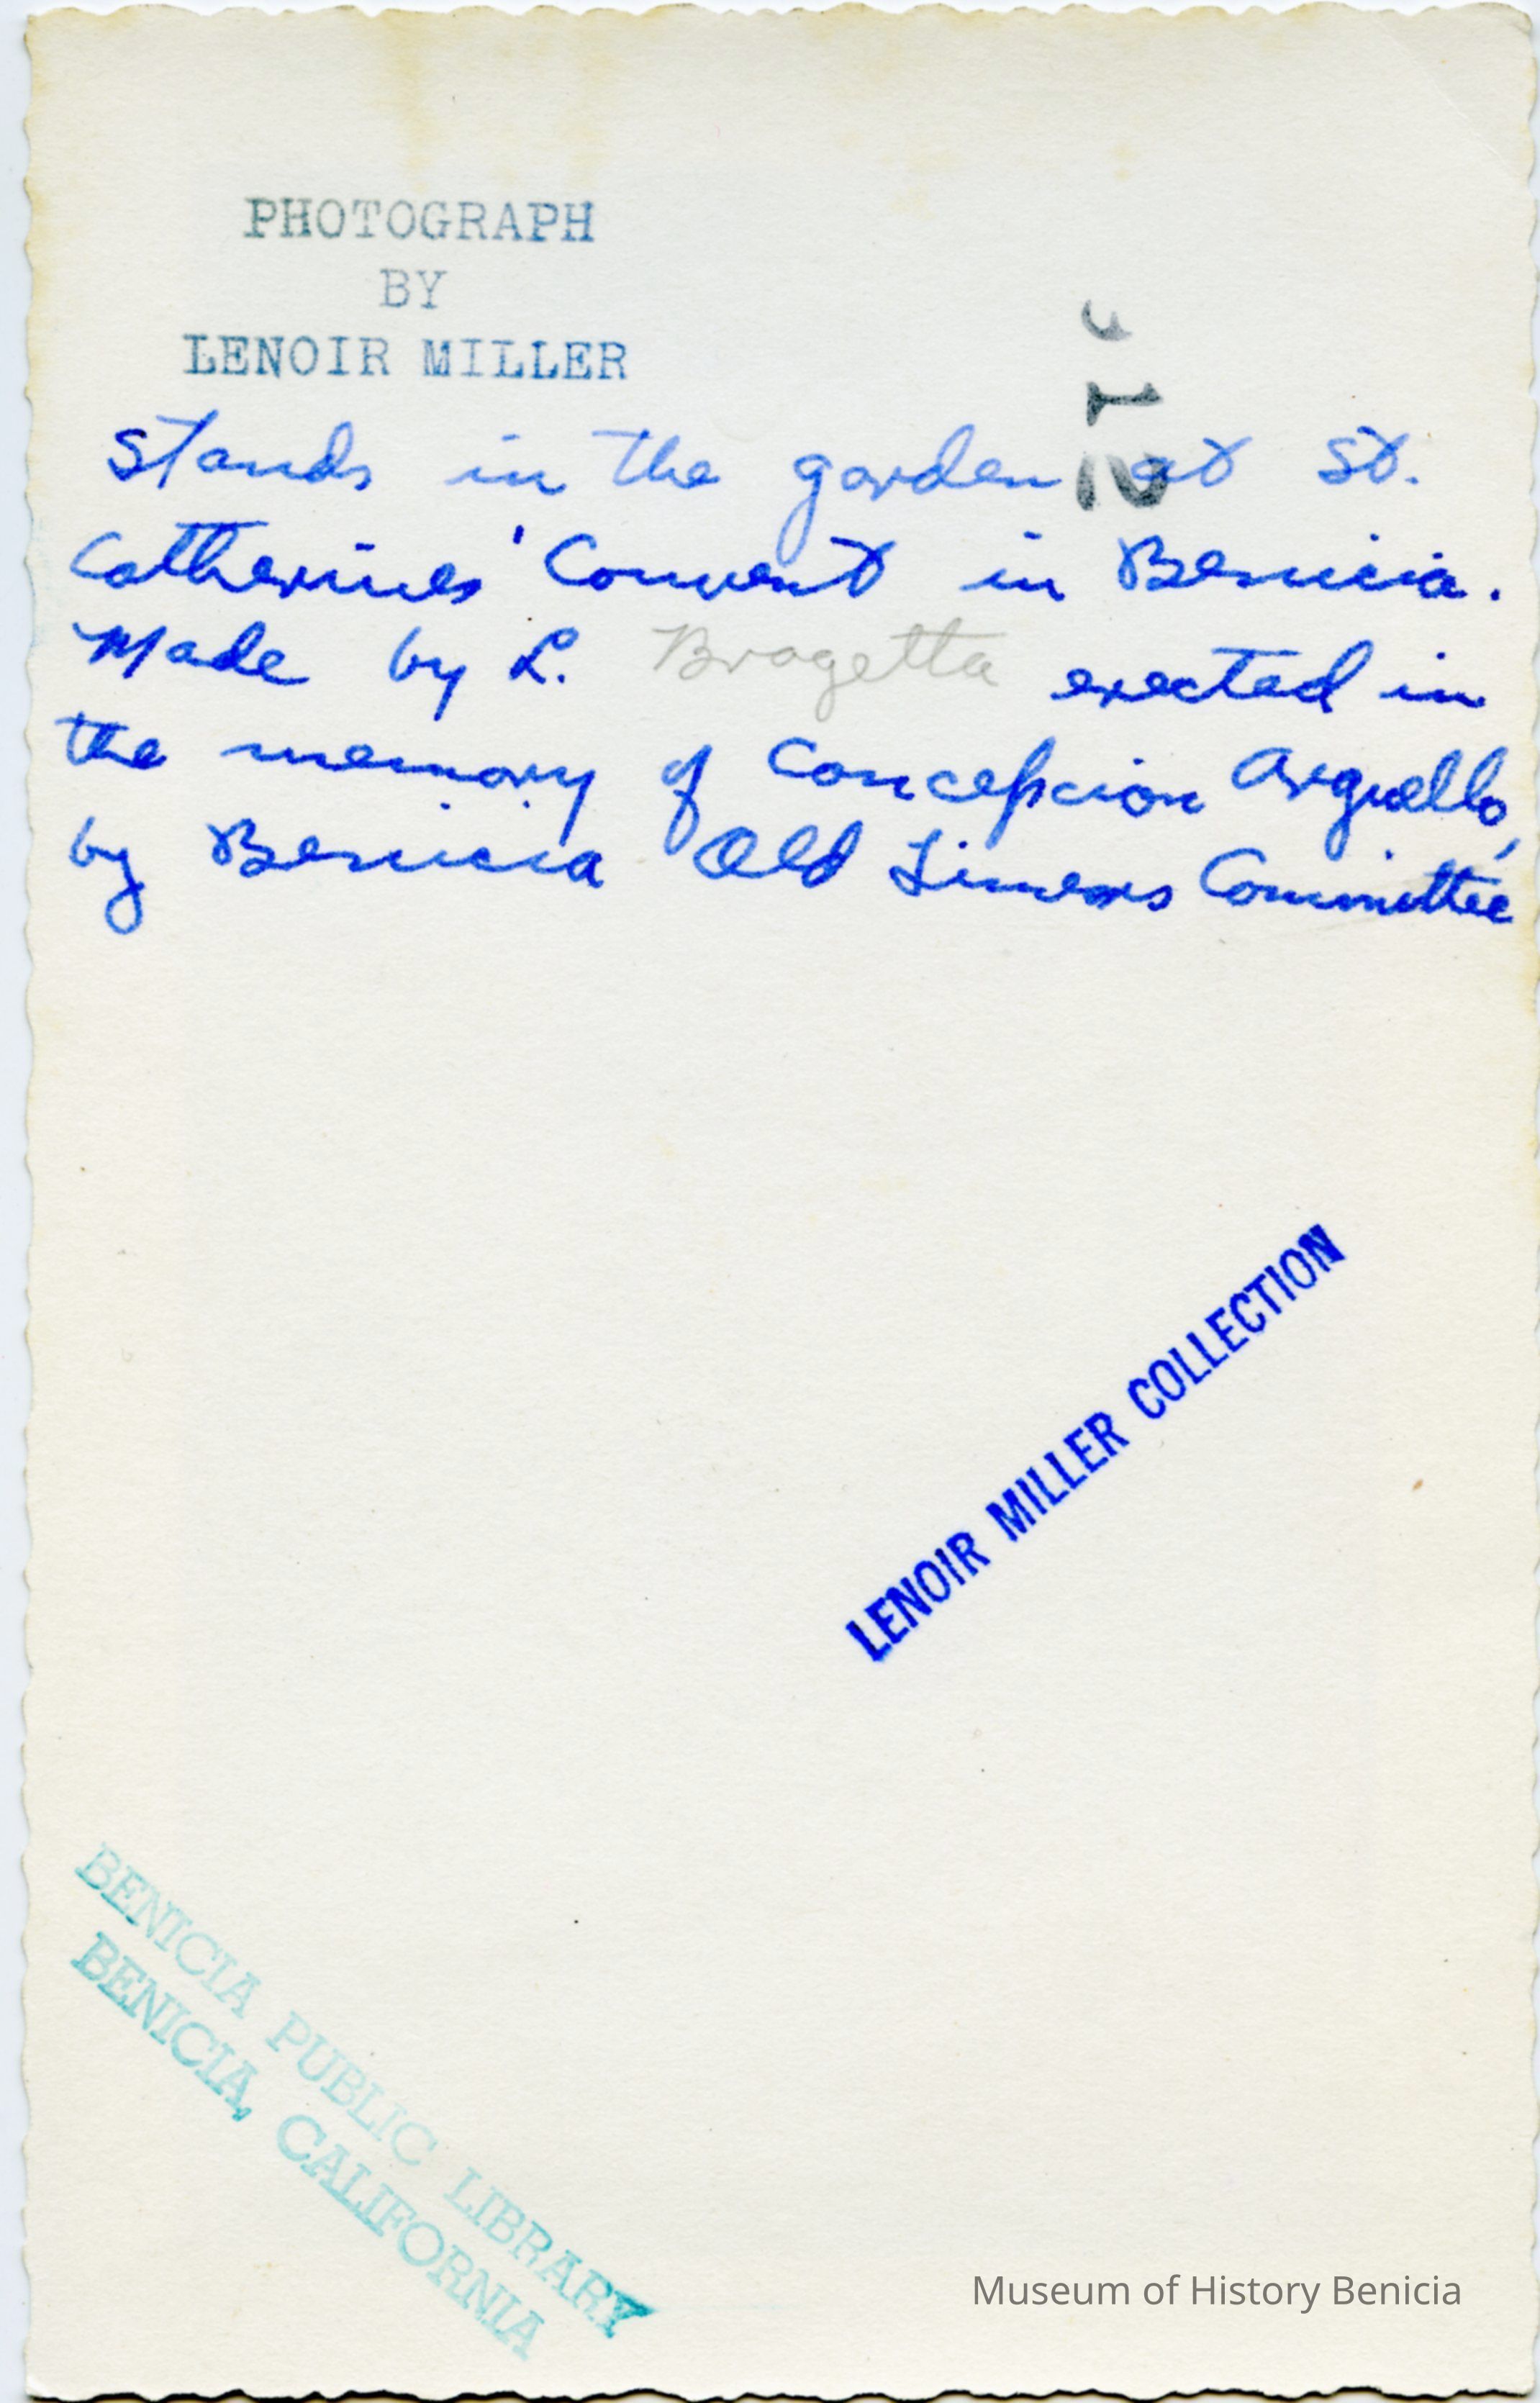 PHOTOGRAPH
BY
LENOIR MILLER
12
Stands in the garden at St.
Catherines' Convent in Benicia.
Made by L. Bragetta erected in
the memory of Concepcion Arguello,
by Benicia Old Timers Committee
LENOIR MILLER COLLECTION
BENICIA PUBLIC LIBRARY
BENICIA, CALIFORNIA
Museum of History Benicia